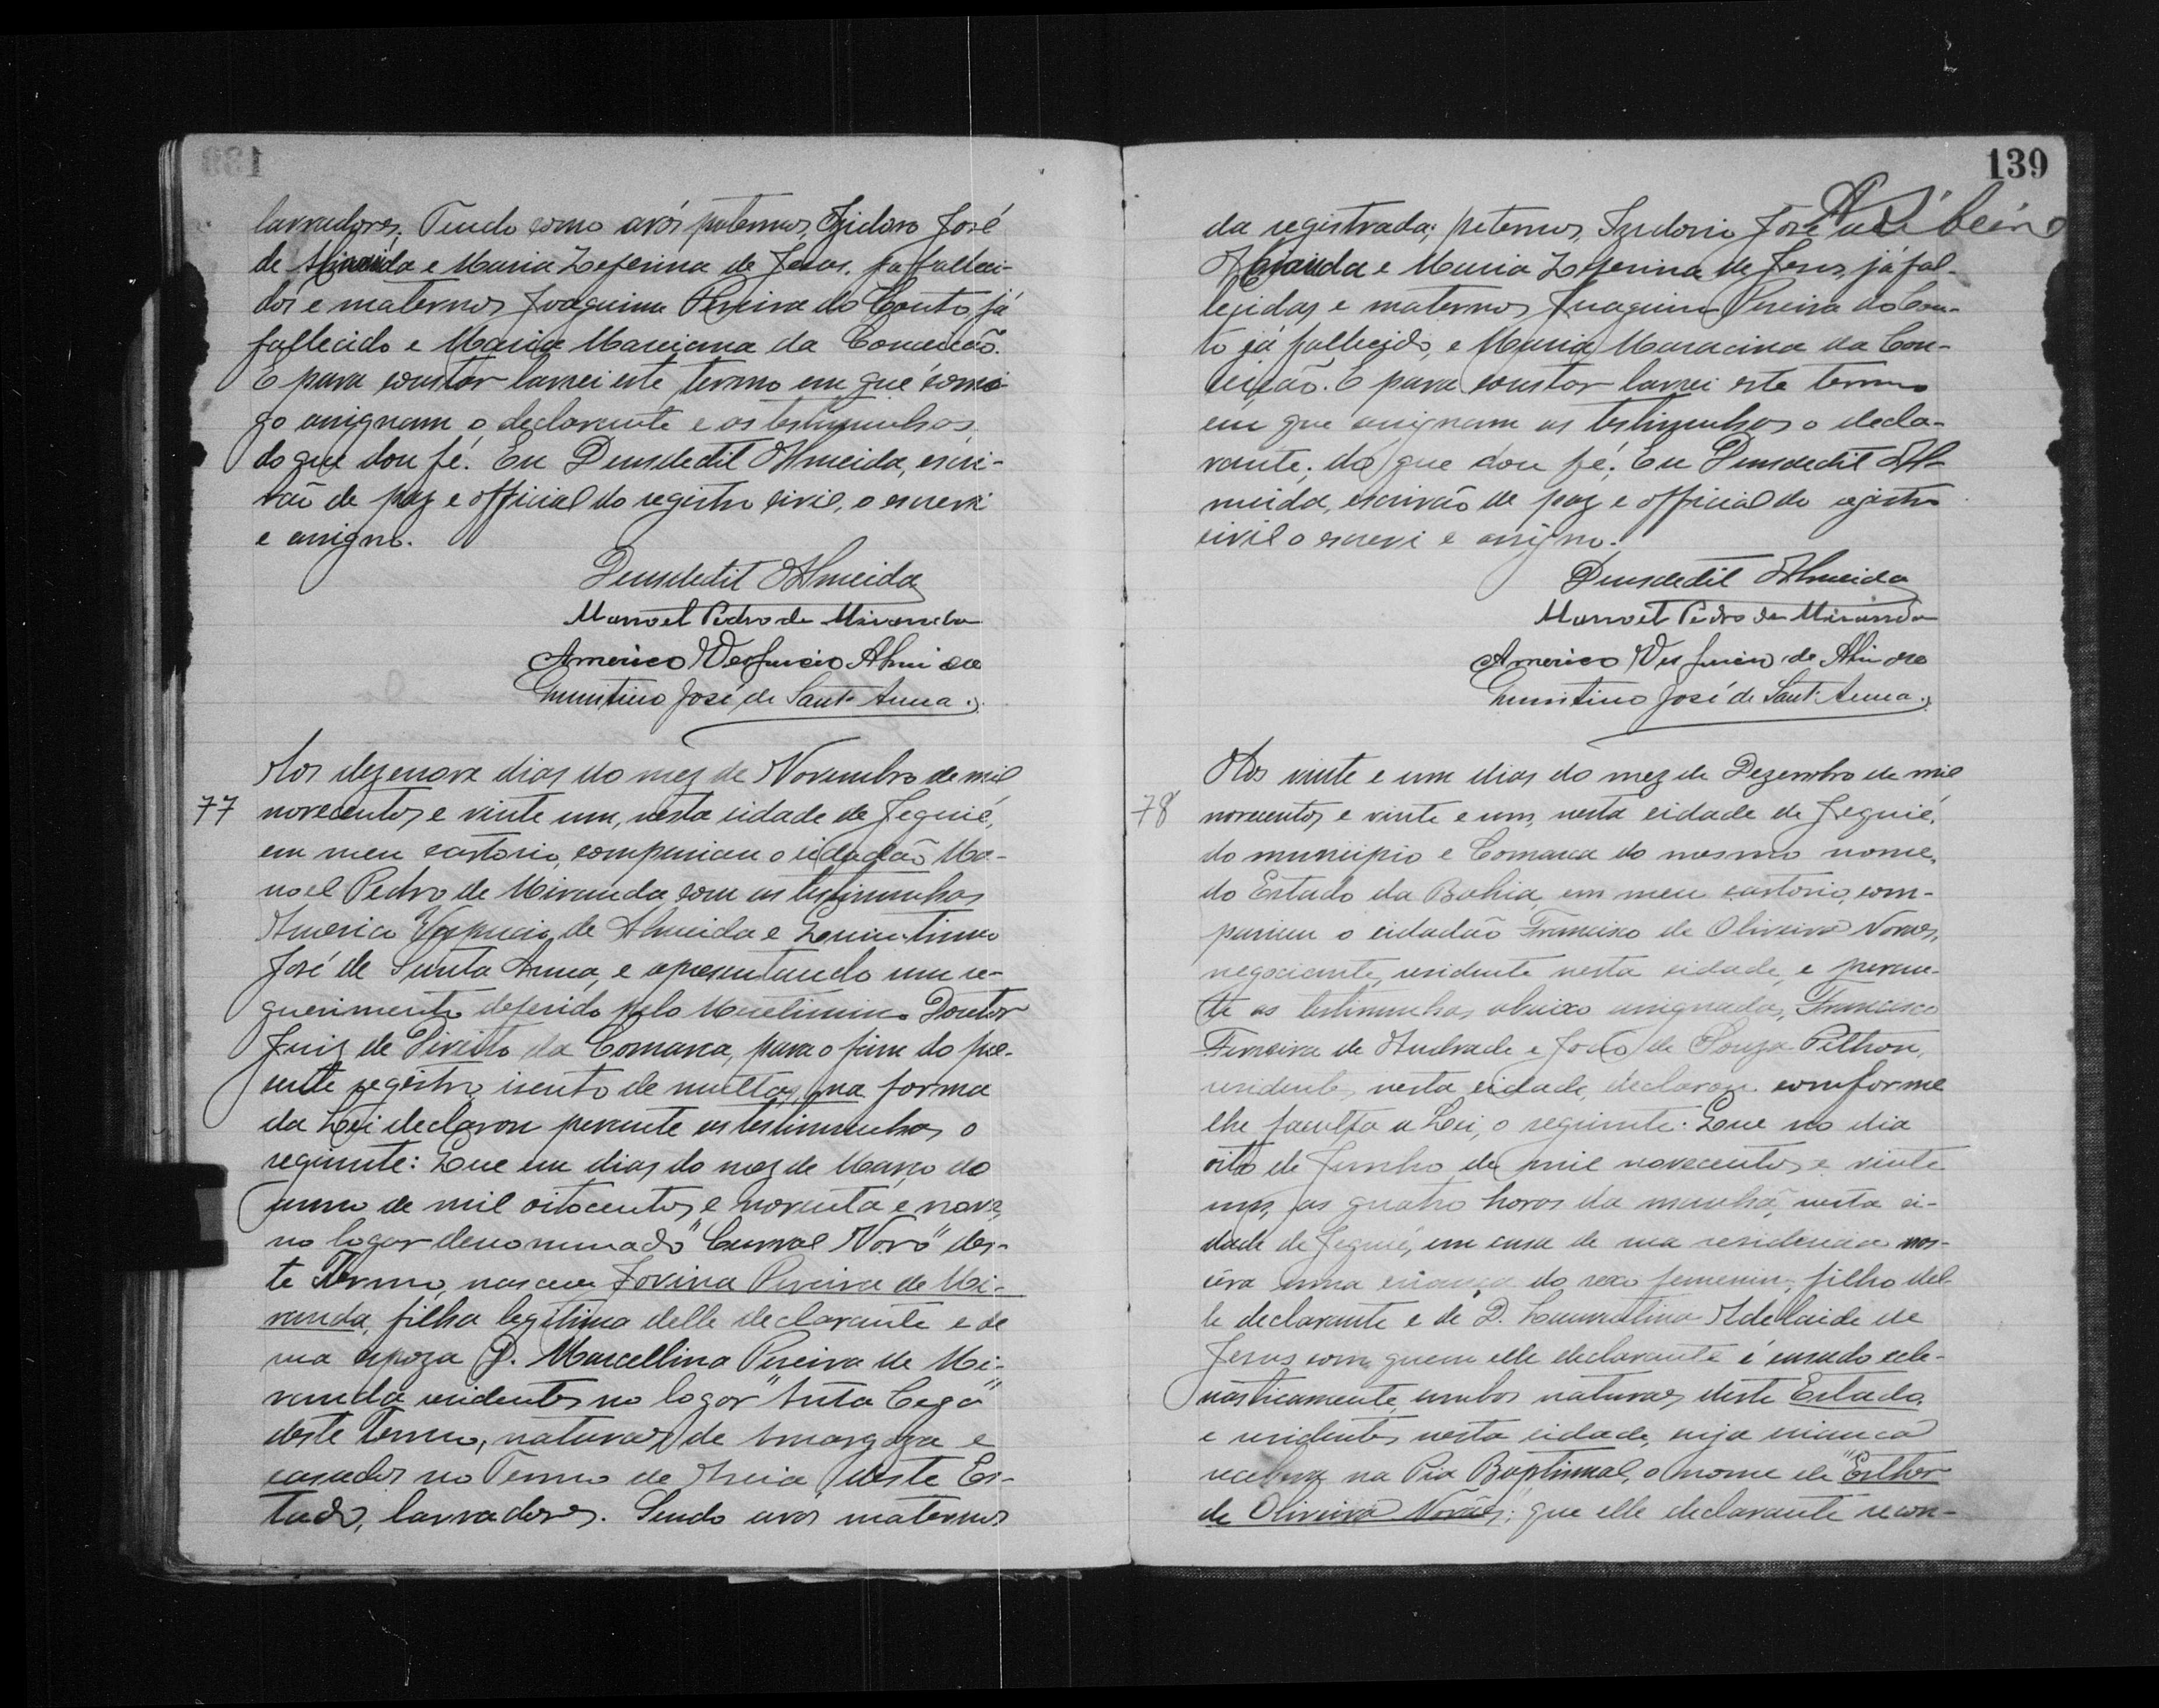 lavradores; Tendo como avós paternos, Izidoro José
de Miranda e Maria Zeferina de Jesus, ja falleci-
dos e maternos Joaquim Pereira do Couto, já
fallecido e Maria Marciana da Conceicão.
E para constar lavrei este termo em que comi
go assignam o declarante e as testimunhas,
do que dou fé. Eu Deusdedit Almeida, escri-
vão de paz e official do registro civil, o escrevi
e assigno.
Deusdedit Almeida
Manoel Pedro de Miranda
Americo Vespucio Almeida
José de Sant'Anna.
77
Aos dezenove dias do mez de Novembro de mil
novecentos e vinte um, nesta cidade de Jequié,
em meu cartorio, compareceu o cidadão Ma-
noel Pedro de Miranda com as testimunhas
Americo Vespucio de Almeida e
José de Santa Anna, e apresentando um re-
querimento deferido pelo Meretissimo Doutor
Juiz de Direito da Comarca, para o fim do pre-
sente registro, isento de multas, na forma
da Lei declarou perante as testimunhas o
seguinte: Que em dias do mez de Março do
anno de mil oitocentos e noventa e nove,
no logar denominado "Curral Novo" des-
te Termo, nasceu Jovina Pereira de Mi-
randa, filha legitima delle declarante e de
sua espoza D. Marcellina Pereira de Mi-
randa residentes no logar "Anta Cega"
deste Termo, naturaes de Amargoza e
casados no Termo de Areia, deste Es-
tado, lavradores. Sendo avós maternos
139
da registrada; paternos, Izidorio José
Miranda e Maria Zeferina de Jesus, já fal-
lecidos e maternos Joaquim Pereira do Cou-
to já fallecido, e Maria Maracina da Con-
ceição. E para constar lavrei este termo
em que assignam as testimunhas o decla-
rante; do que dou fé. Eu Deusdedit Al-
meida, escrivão de paz e official do registro
civil o escrevi e assigno.
Deusdedit Almeida
Manoel Pedro de Miranda
Americo Vespucio de Almeida
José de Sant'Anna.
78
Aos vinte e um dias do mez de Dezembro de mil
novecentos e vinte e um, nesta cidade de Jequié,
do municipio e Comarca do mesmo nome,
do Estado da Bahia, em meu cartorio, com-
pareceu o cidadão Francisco de Oliveira Novaes,
negociante, residente nesta cidade, e peran-
te as testimunhas abaixo assignadas, Francisco
Ferreira de Andrade e João de Souza Pithon,
residentes nesta cidade, declarou comforme
lhe faculta a Lei, o seguinte: Que no dia
oito de Junho de mil novecentos e vinte
um, as quatro horas da manhã, nesta ci-
dade de Jequié, em casa de sua residencia nas-
cera uma criança do sexo feminino, filha del-
le declarante e de D. Adelaide de
Jesus com quem elle declarante é casado ecle-
siasticamente, ambos naturaes deste Estado,
e residentes nesta cidade, cuja criança
recebera na Pia Baptismal, o nome de "Esther
de Oliveira Novaes; que elle declarante recon-